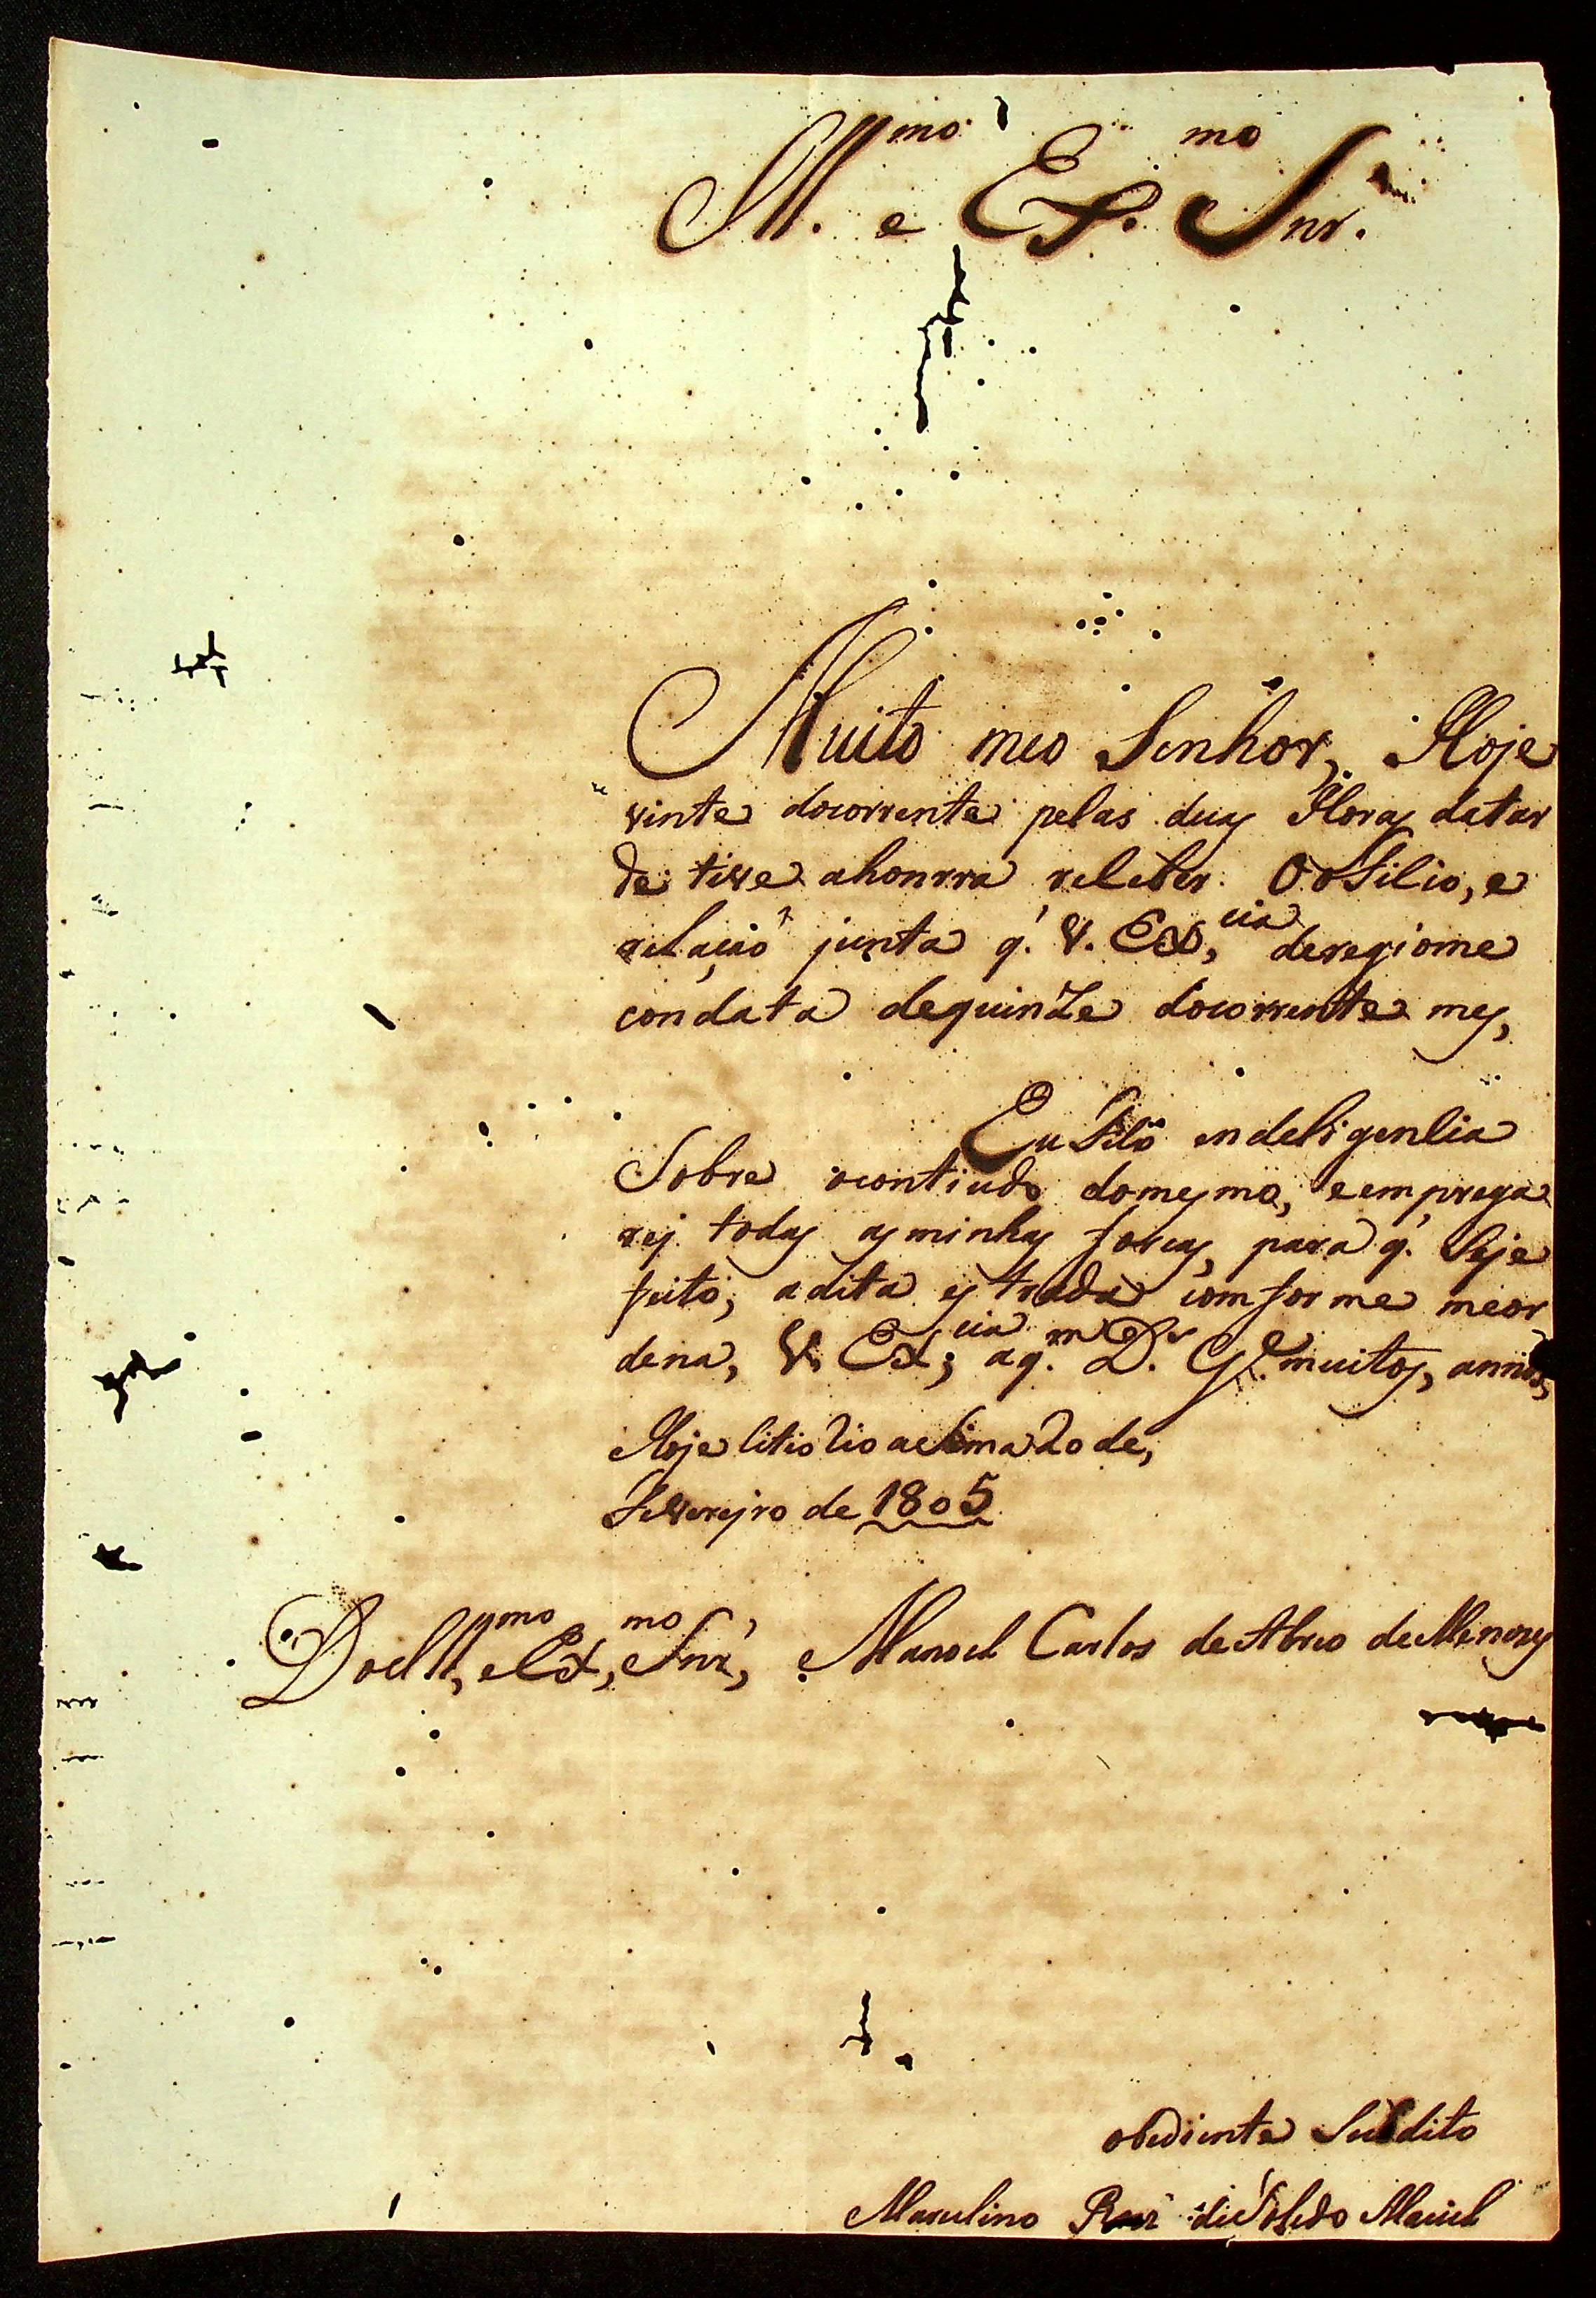 Ill.mo e Ex.mo Snr.
Muito meo Senhor, Hoje
vinte docorrente pelas duas Horas datar
de tive ahonrra reseber Oofisio, e
relaçaõ junta q' V. Ex,cia deregiome
condata dequinze docorrentte mes,
Eu fico endeligensia
Sobre ocontiudo domesmo, eemprega
rej todas asminhas forcas, para q' Seje
feito, adita estrada comforme meor
dena, V. Ex,cia aq.m D.s G.e muitos, annos,
Hoje Citio Rio asima 20 de,
Feverejro de 1805
Do Ill,mo e Ex,mo Snr, Manoel Carlos de Abreo de Menezes
obediente Subdito
Marselino de Toledo Maciel